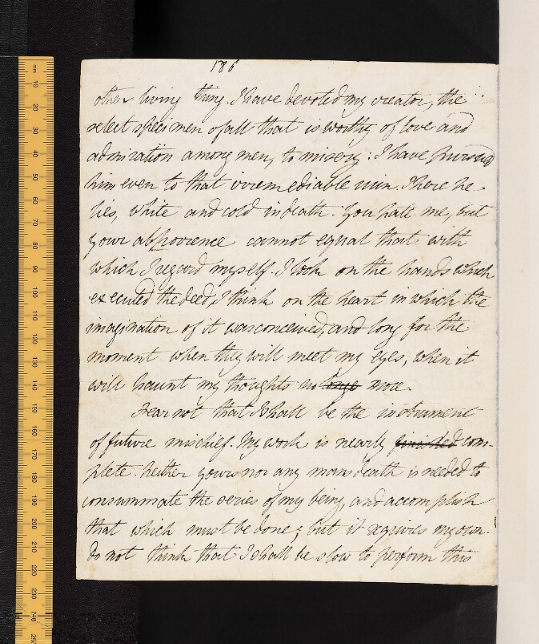 186
other living thing. I have devoted my creator, the
select specimen of all that is worthy of love and
admiration among men, to misery; I have pursued
him even to that irremediable ruin. There he
lies, white and cold in death. You hate me, but
your abhorrence cannot equal that with
which I regard myself. I look on the hands which
executed the deed, I think on the heart in which the
imagination of it was conceived, and long for the
moment when they will meet my eyes, when it
will haunt my thoughts no more.
Fear not that I shall be the instrument
of future mischief. My work is nearly com-
plete. Neither yours nor any man death is needed to
consummate the series of my being, and accomplish
that which must be done; but it requires my own.
do not think that I shall be slow to perform this